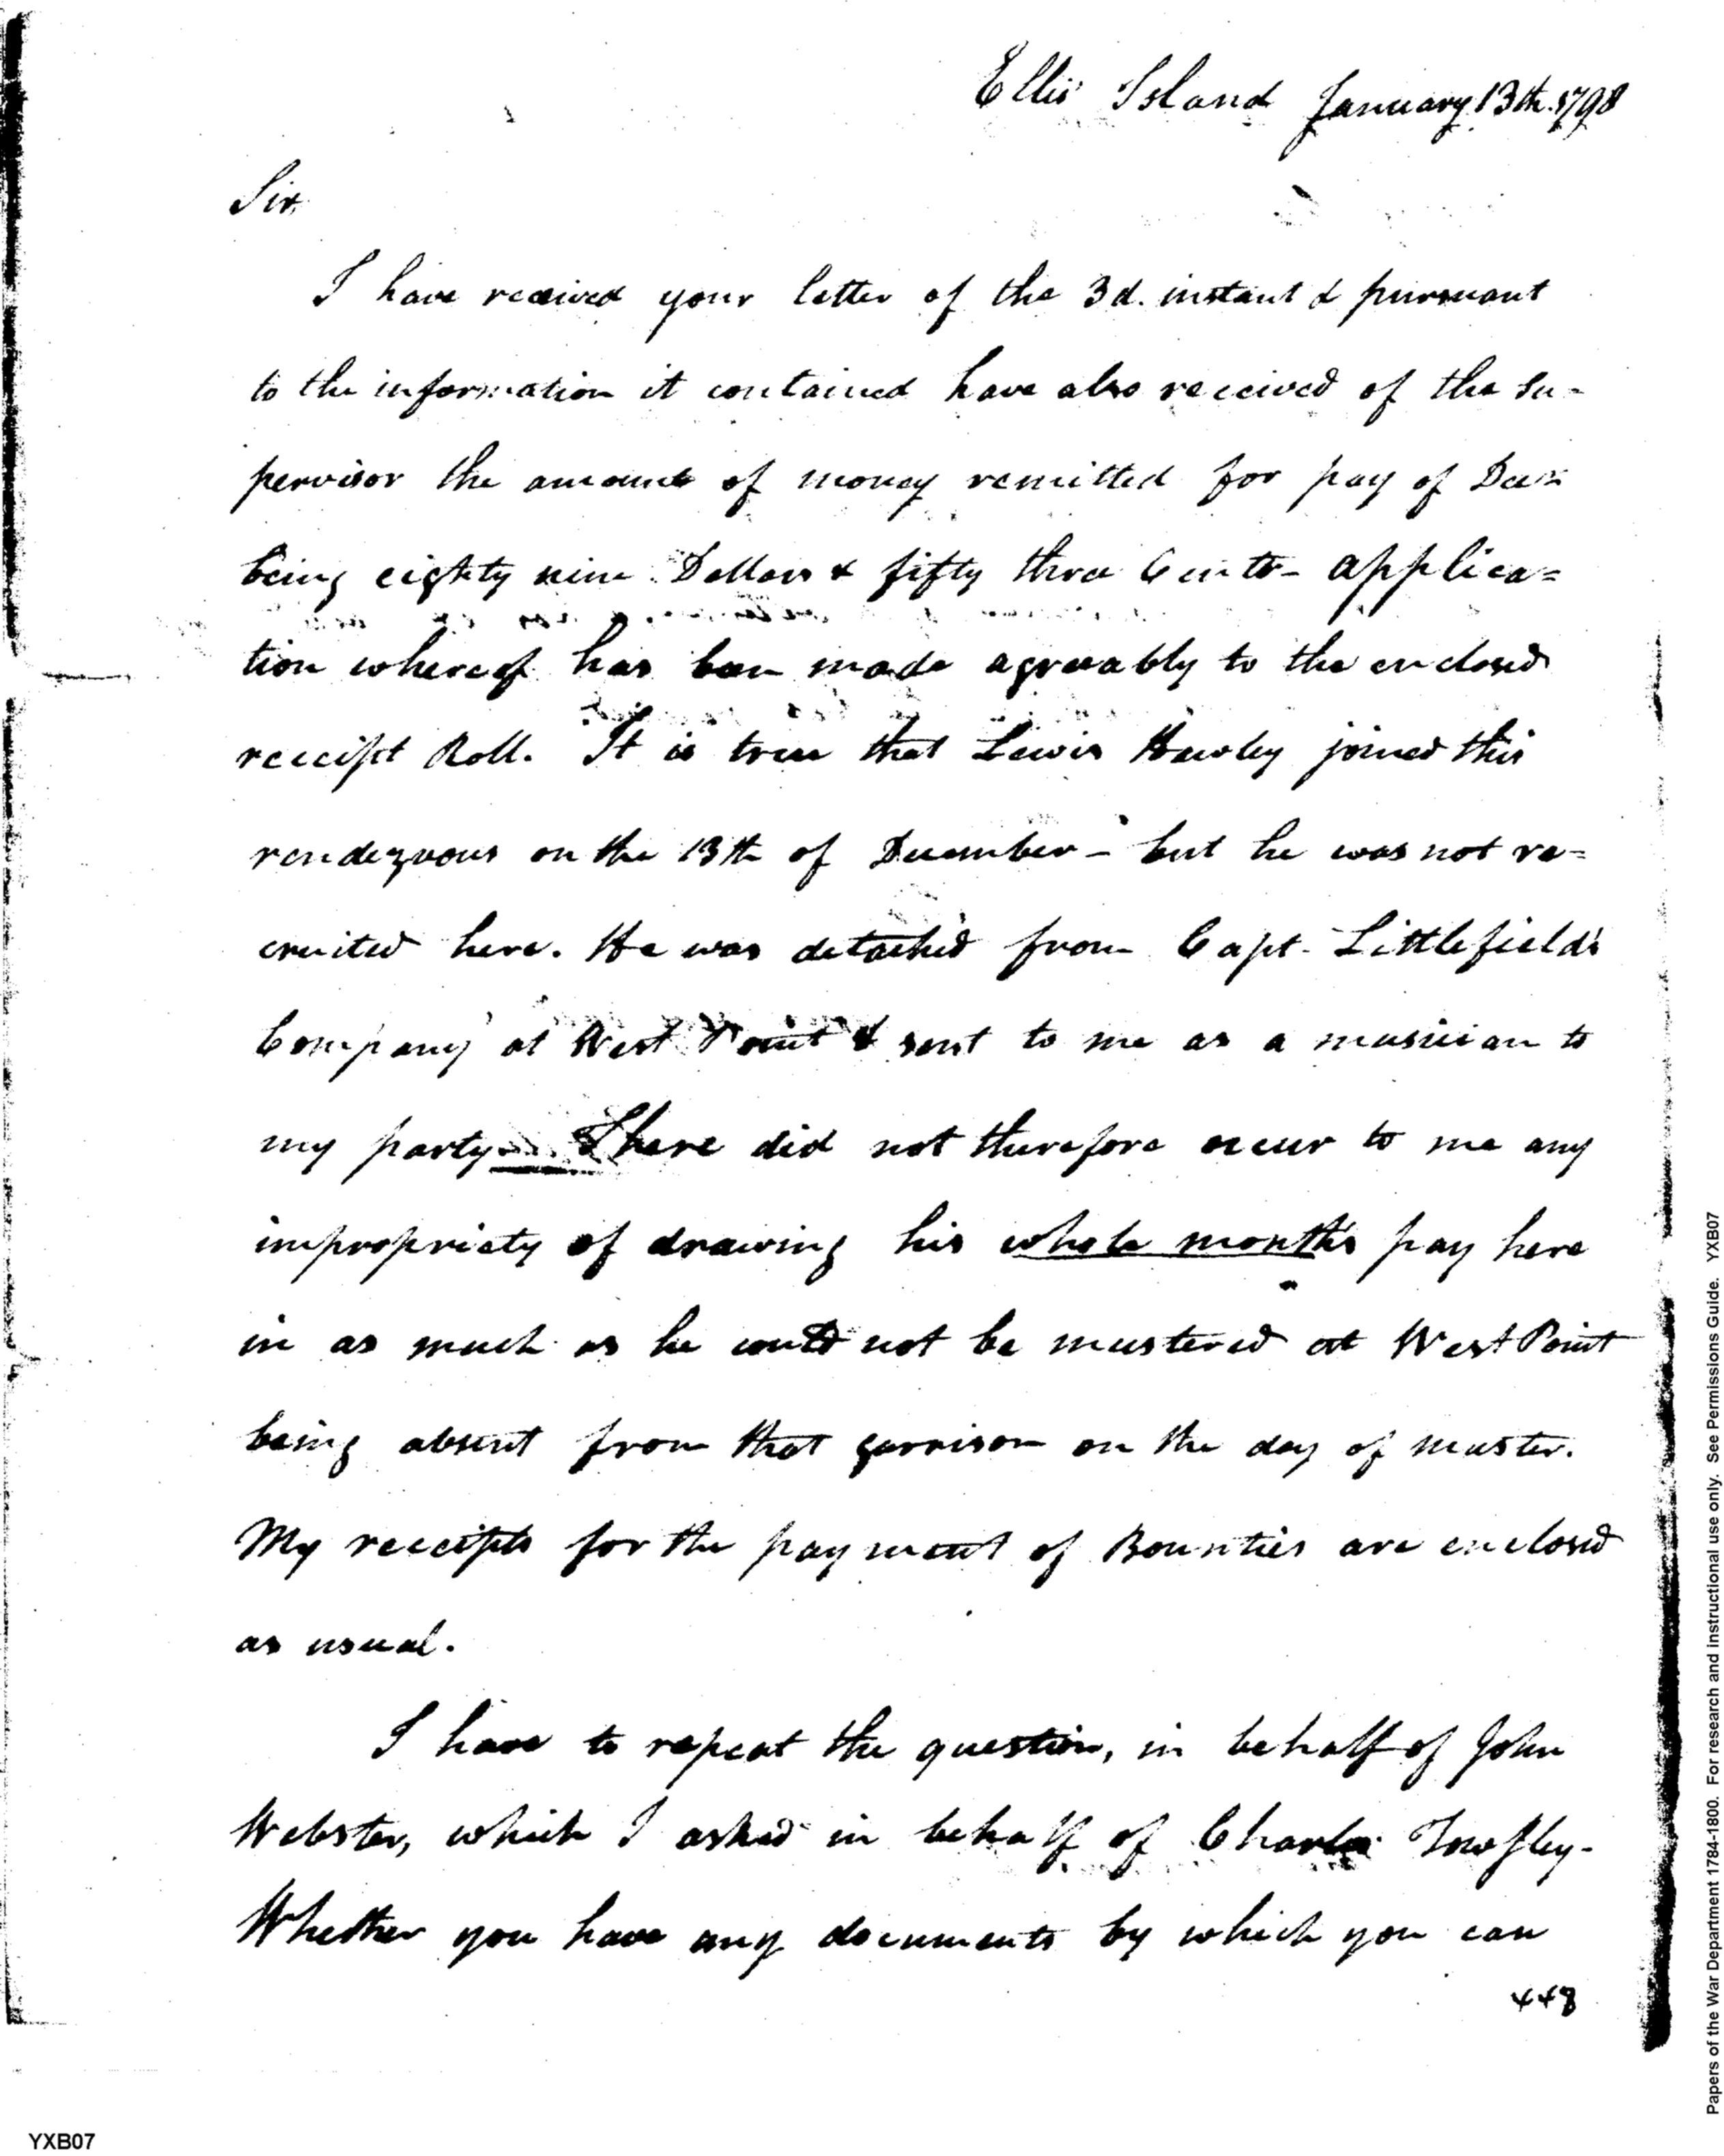 Ellis Island January 13th. 1798
Sir,
I have received your letter of the 3d. instant & pursuant
to the information it contained have also received of the Su-
pervisor the amount of money remitted for pay of Decr.
being eighty nine Dollars & fifty three Cents - applica=
tion whereof has been made agreeably to the enclosed
receipt Roll. It is true that Lewis Hawley joined this
rendezvous on the 13th of December - but he was not re=
cruited here. He was detached from Capt. Littlefield's
Company at West Point & sent to me as a musician to
my party. There did not therefore occur to me any
impropriety of drawing his whole month's pay here
in as much as he could not be mustered at West Point
being absent from that garrison on the day of muster.
My receipts for the payment of Bounties are enclosed
as usual.
I have to repeat the question, in behalf of John
Webster, which I asked in behalf of Charles -
Whether you have any documents by which you can
448
YXB07
Papers of the War Department 1784-1800. For research and instructional use only. See Permissions Guide. YXB07